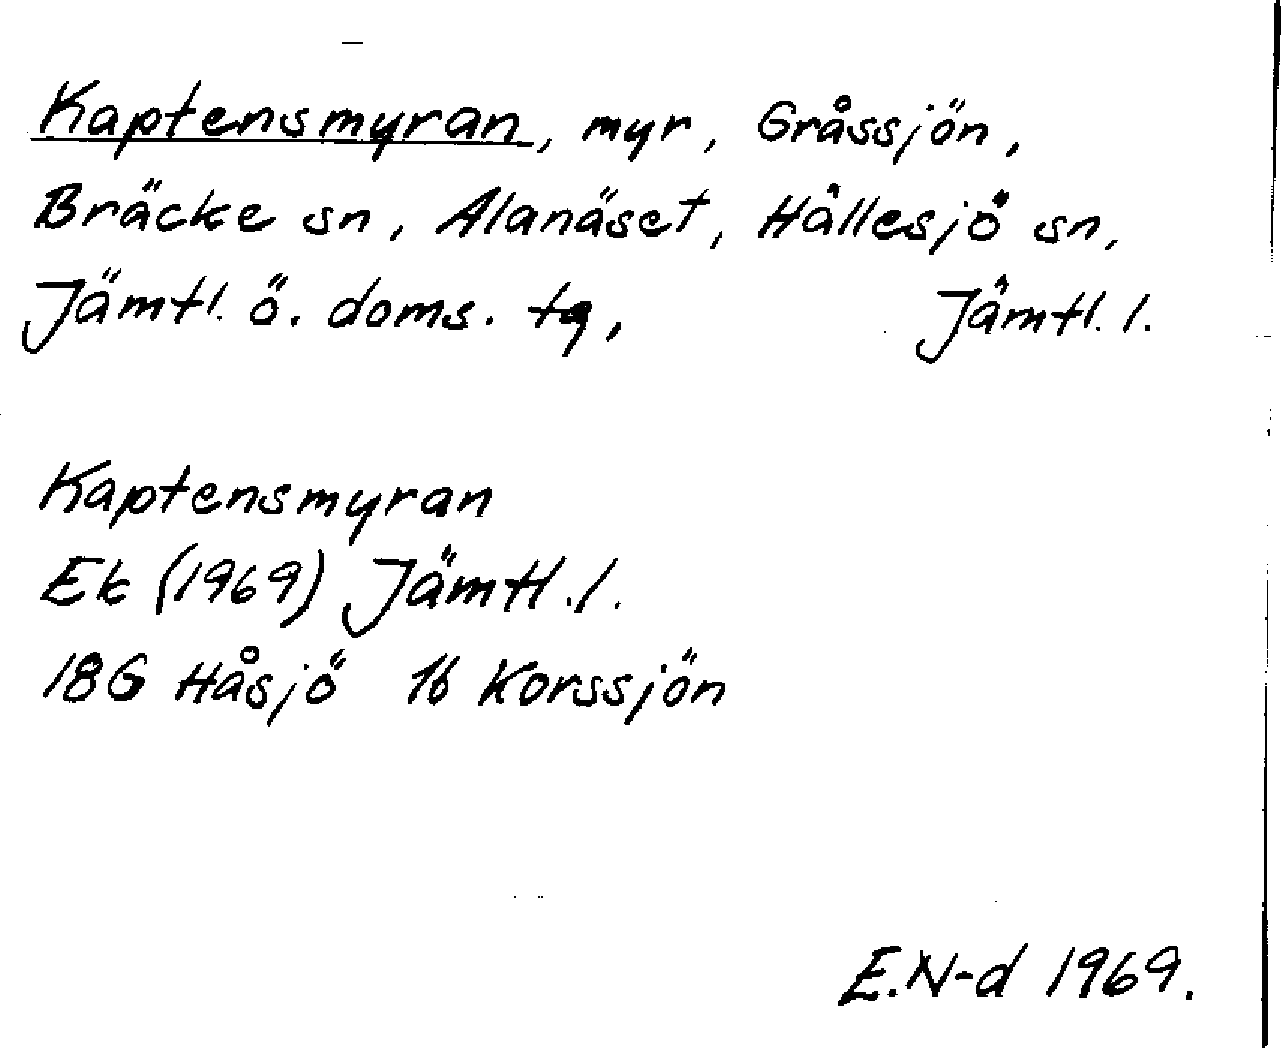 Kaptensmyran, myr, Gråssjön,
Bräcke sn, Alanäset, Hällesjö sn,
Jämtl. ö. doms. tg, Jämtl. l.
Kaptensmyran
Ek (1969) Jämtl. l.
18G Håsjö 1b Korssjön
E.N-d 1969.